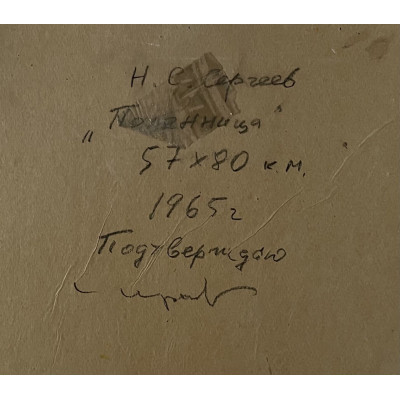 Н. С. Сергеев
„Поленница"
57х80 к.м.
1965г
Подтверждаю